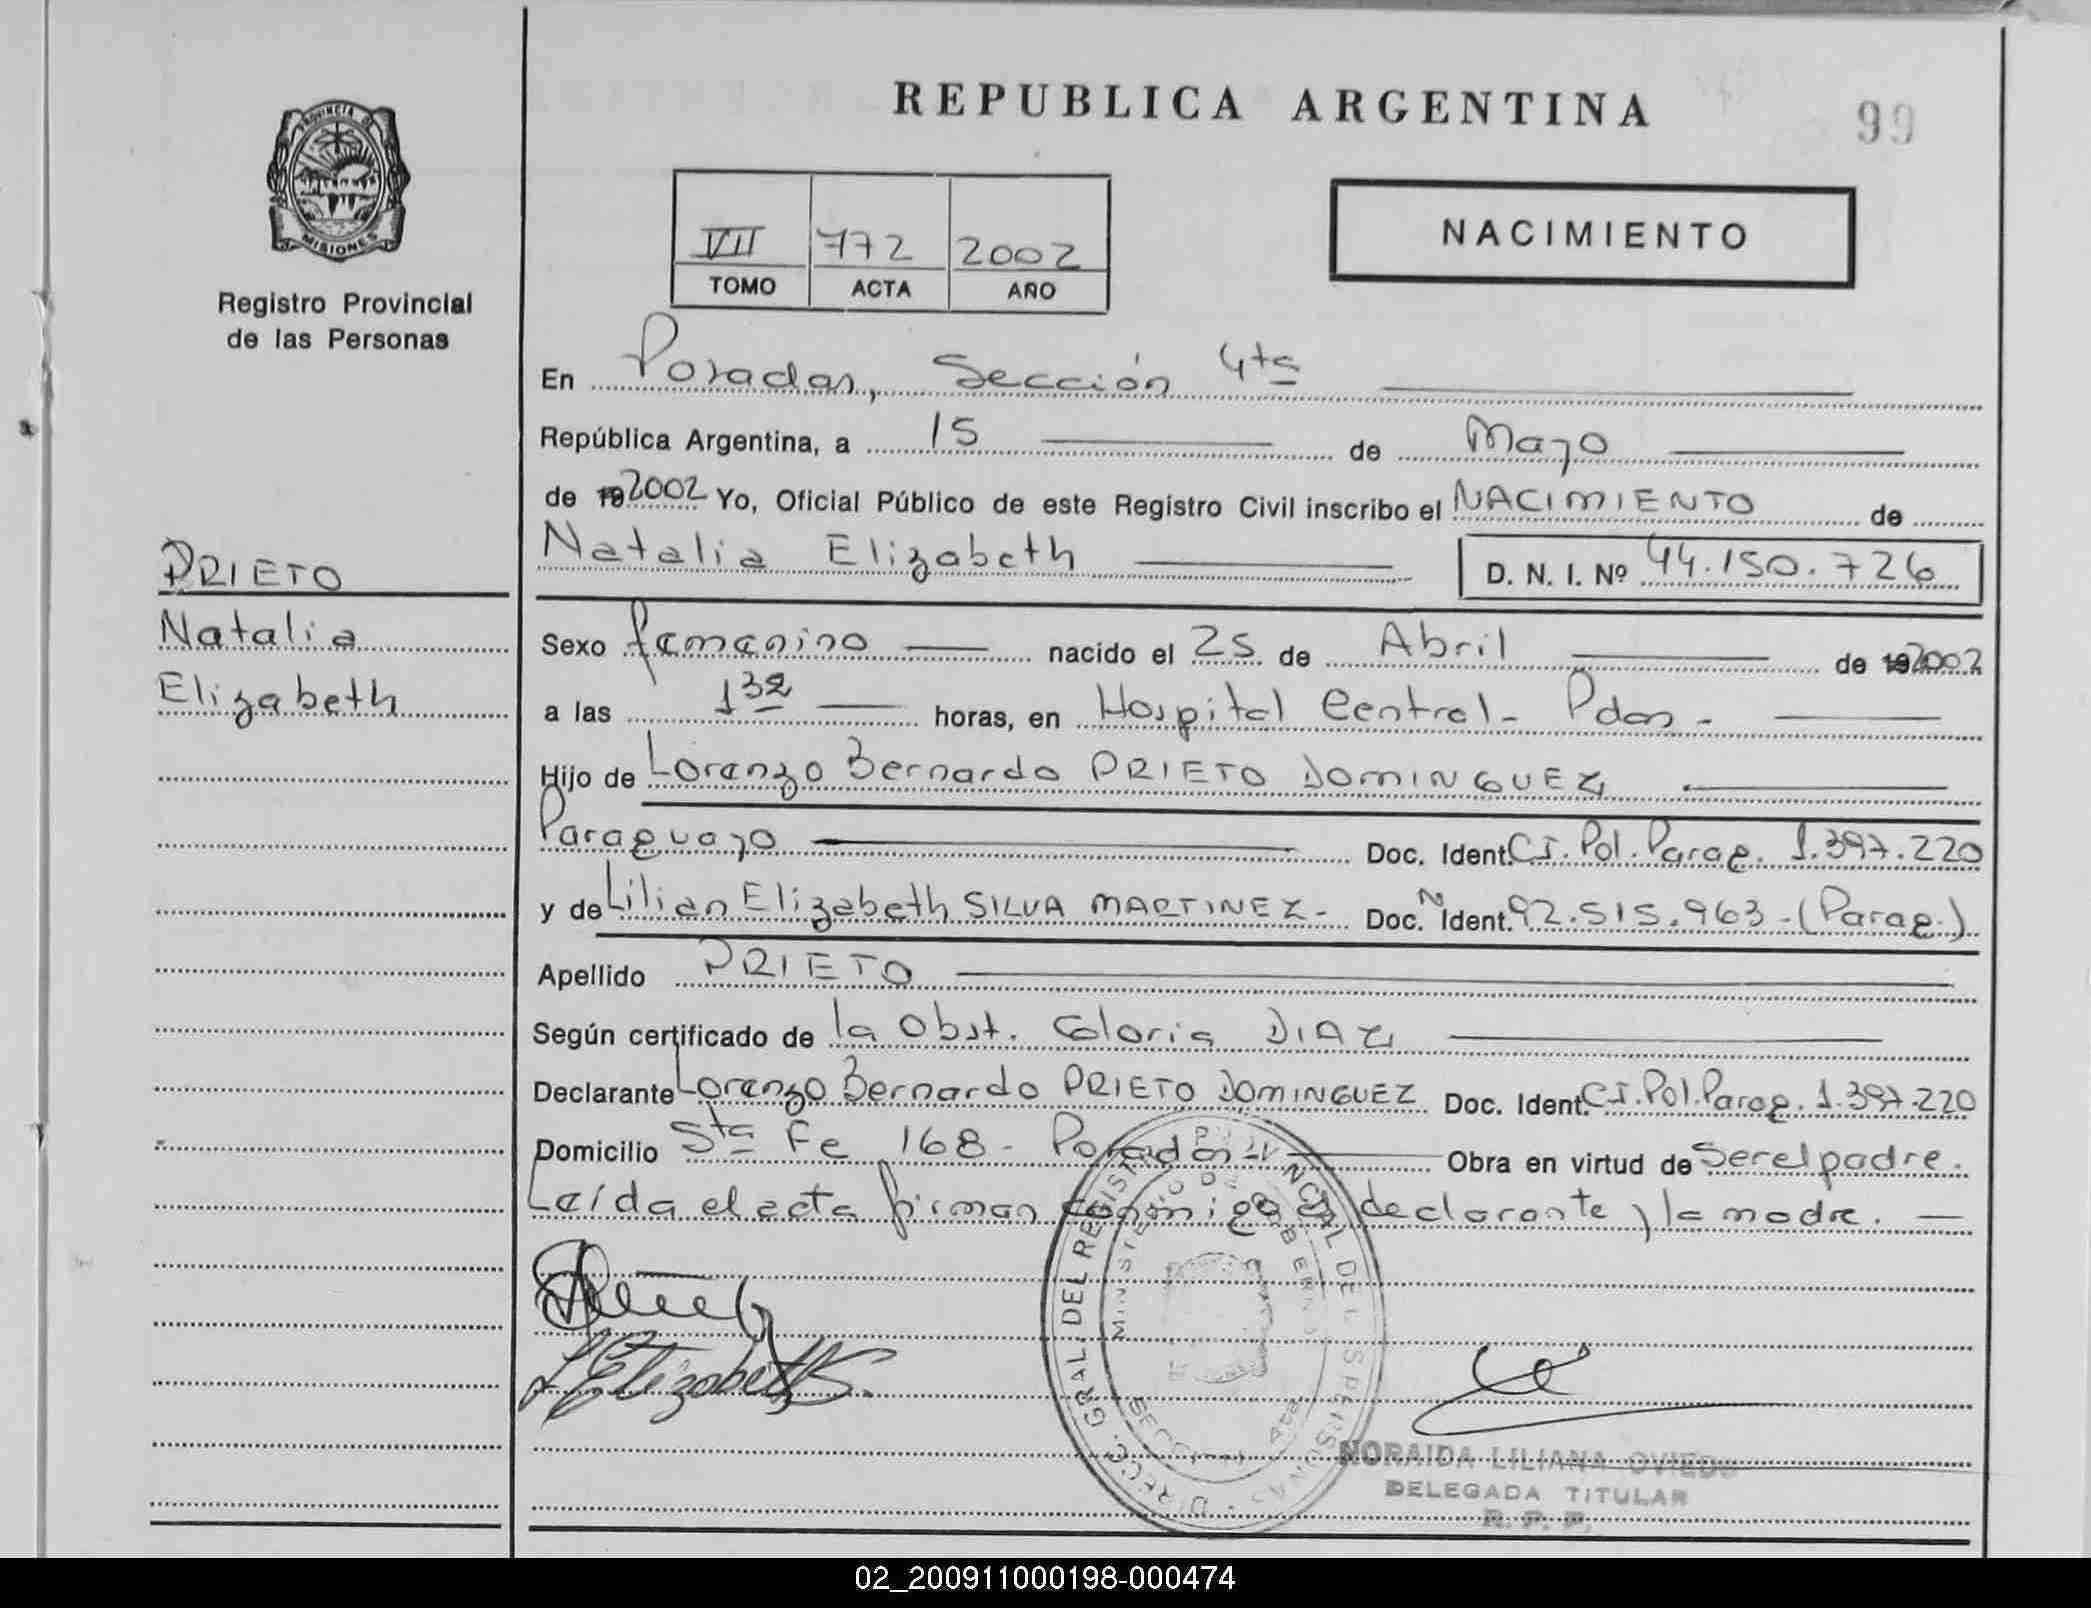 REPUBLICA ARGENTINA
99
PROVINCIA DE
MISIONES
Registro Provincial
de las Personas
VII 772 2002
TOMO ACTA AÑO
NACIMIENTO
En Posadas, Sección 4ta
República Argentina, a 15 de Mayo
de 19 2002 Yo, Oficial Público de este Registro Civil inscribo el NACIMIENTO de
Natalia Elizabeth D. N. I. Nº 44.150.726
PRIETO
Natalia
Elizabeth
Sexo femenino nacido el 25 de Abril de 19 2002
a las 1 32 horas, en Hospital Central - Pdas -
Hijo de Lorenzo Bernardo PRIETO DOMINGUEZ
Paraguayo Doc. Ident. C.I. Pol. Parag. 1.397.220
y de Lilian Elizabeth SILVA MARTINEZ - Doc. N Ident. 92.515.963 - (Parag.)
Apellido PRIETO
Según certificado de la Obst. Gloria DIAZ
Declarante Lorenzo Bernardo PRIETO DOMINGUEZ Doc. Ident. C.I. Pol. Parag. 1.397.220
Domicilio Sta Fe 168 - Posadas - Obra en virtud de Ser el padre.
Leída el acta firman conmigo el declarante y la madre. —
DIRECC. GRAL. DEL REGIST. PROVINCIAL DE LAS PERSONAS
MINISTERIO DE GOBIERNO
SECCION 4ta
L Elizabeth S.
NORAIDA LILIANA OVIEDO
DELEGADA TITULAR
R. P. P.
02_200911000198-000474